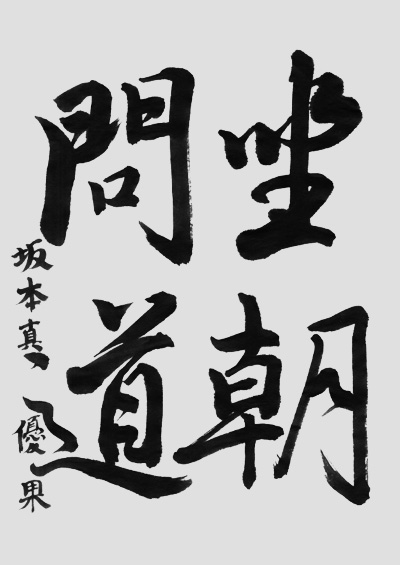 坐朝
問道
坂本真優果